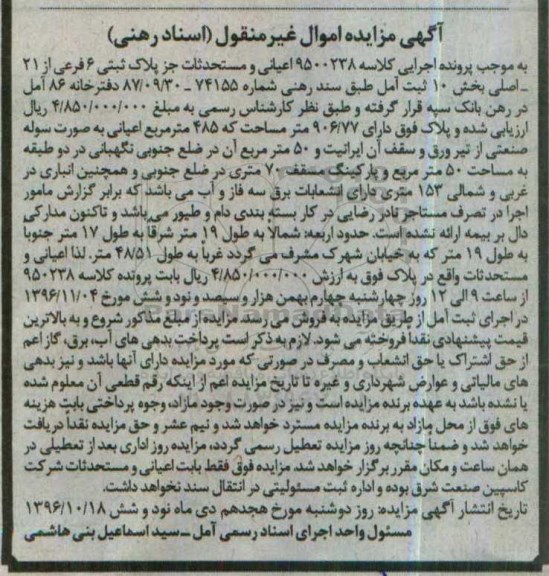 آگهی مزایده اموال غیر منقول (اسناد رهنی)
به موجب پرونده اجرایی کلاسه ۹۵۰۰۲۳۸ اعیانی و مستحدثات جز پلاک ثبتی ۶ فرعی از ۲۱
ـ اصلی بخش ۱۰ ثبت آمل طبق سند رهنی شماره ۷۴۱۵۵ ـ ۸۷/۰۹/۳۰ دفترخانه ۸۶ آمل
در رهن بانک سپه قرار گرفته و طبق نظر کارشناس رسمی به مبلغ ۴/۸۵۰/۰۰۰/۰۰۰ ریال
ارزیابی شده و پلاک فوق دارای ۹۰۶/۷۷ متر مساحت که ۴۸۵ مترمربع اعیانی به صورت سوله
صنعتی از تیر ورق و سقف آن ایرانیت و ۵۰ متر مربع آن در ضلع جنوبی نگهبانی در دو طبقه
به مساحت ۵۰ متر مربع و پارکینگ مسقف ۷۰ متری در ضلع جنوبی و همچنین انباری در
غربی و شمالی ۱۵۳ متری دارای انشعابات برق سه فاز و آب می باشد که برابر گزارش مامور
اجرا در تصرف مستاجر نادر رضایی در کار بسته بندی دام و طیور می باشد و تاکنون مدارکی
دال بر بیمه ارائه نشده است. حدود اربعه: شمالاً به طول ۱۹ متر شرقاً به طول ۱۷ متر جنوباً
به طول ۱۹ متر که به خیابان شهرک مشرف می گردد غرباً به طول ۴۸/۵۱ متر. لذا اعیانی و
مستحدثات واقع در پلاک فوق به ارزش ۴/۸۵۰/۰۰۰/۰۰۰ ریال بابت پرونده کلاسه ۹۵۰۲۳۸
از ساعت ۹ الی ۱۲ روز چهارشنبه چهارم بهمن هزار و سیصد و نود و شش مورخ ۱۳۹۶/۱۱/۰۴
در اجرای ثبت آمل از طریق مزایده به فروش می رسد. مزایده از مبلغ مذکور شروع و به بالاترین
قیمت پیشنهادی نقداً فروخته می شود. لازم به ذکر است پرداخت بدهی های آب، برق، گاز اعم
از حق اشتراک یا حق انشعاب و مصرف در صورتی که مورد مزایده دارای آنها باشد و نیز بدهی
های مالیاتی و عوارض شهرداری و غیره تا تاریخ مزایده اعم از اینکه رقم قطعی آن معلوم شده
یا نشده باشد به عهده برنده مزایده است و نیز در صورت وجود مازاد، وجوه پرداختی بابت هزینه
های فوق از محل مازاد به برنده مزایده مسترد خواهد شد و نیم عشر و حق مزایده نقداً دریافت
خواهد شد و ضمناً چنانچه روز مزایده تعطیل رسمی گردد، مزایده روز اداری بعد از تعطیلی در
همان ساعت و مکان مقرر برگزار خواهد شد. مزایده فوق فقط بابت اعیانی و مستحدثات شرکت
کاسپین صنعت شرق بوده و اداره ثبت مسئولیتی در انتقال سند نخواهد داشت.
تاریخ انتشار آگهی مزایده: روز دوشنبه مورخ هجدهم دی ماه نود و شش ۱۳۹۶/۱۰/۱۸
مسئول واحد اجرای اسناد رسمی آمل ـ سید اسماعیل بنی هاشمی